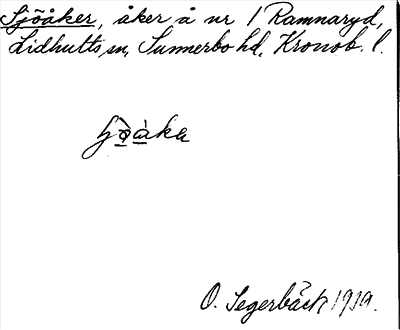 Sjöåker, åker å nr 1 Ramnaryd,
Lidhults sn, Sunnerbo hd, Kronob. l.
O. Segerbäck 1919.